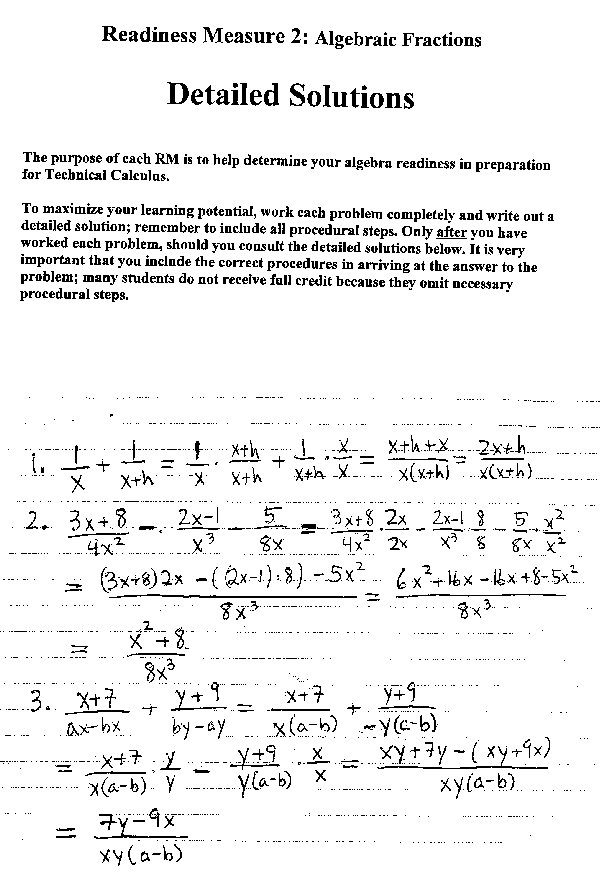 Readiness Measure 2: Algebraic Fractions
Detailed Solutions
The purpose of each RM is to help determine your algebra readiness in preparation
for Technical Calculus.
To maximize your learning potential, work each problem completely and write out a
detailed solution; remember to include all procedural steps. Only after you have
worked each problem, should you consult the detailed solutions below. It is very
important that you include the correct procedures in arriving at the answer to the
problem; many students do not receive full credit because they omit necessary
procedural steps.
1. 1/x + 1/(x+h) = 1/x · (x+h)/(x+h) + 1/(x+h) · x/x = (x+h+x)/(x(x+h)) = (2x+h)/(x(x+h))
2. (3x+8)/(4x²) - (2x-1)/(x³) - 5/(8x) = (3x+8)/(4x²) · 2x/2x - (2x-1)/(x³) · 8/8 - 5/(8x) · x²/x²
= ((3x+8)2x - ((2x-1)·8) - 5x²)/(8x³) = (6x²+16x-16x+8-5x²)/(8x³)
= (x²+8)/(8x³)
3. (x+7)/(ax-bx) + (y+9)/(by-ay) = (x+7)/(x(a-b)) + (y+9)/(-y(a-b))
= (x+7)/(x(a-b)) · y/y - (y+9)/(y(a-b)) · x/x = (xy+7y-(xy+9x))/(xy(a-b))
= (7y-9x)/(xy(a-b))